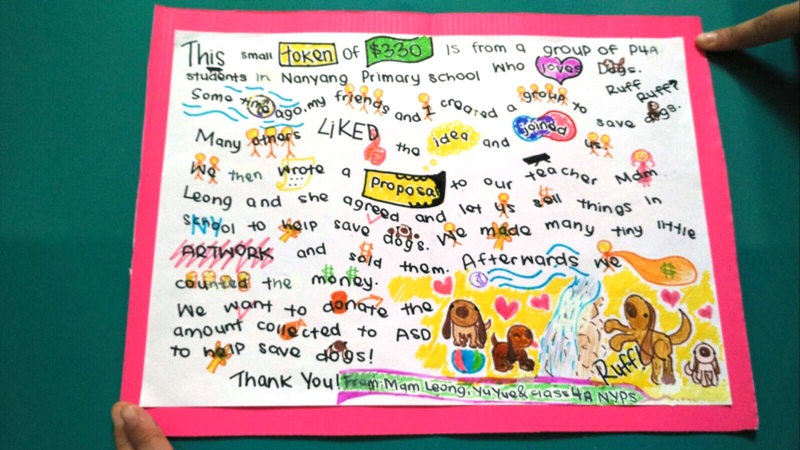 This small token of $330 is from a group of P4A
students in Nanyang Primary school who loves Dogs.
Ruff Ruff?
Some time ago, my friends and I created a group to save dogs.
Many others LIKED the idea and joined us.
We then wrote a Proposal to our teacher Mam
Leong and she agreed and let us sell things in
school to help save dogs. We made many tiny little
ARTWORK and sold them. Afterwards we
counted the money.
We want to donate the
amount collected to ASD
to help save dogs!
Ruff!
Thank You! From: Mam Leong, YuYue & class 4A NYPS